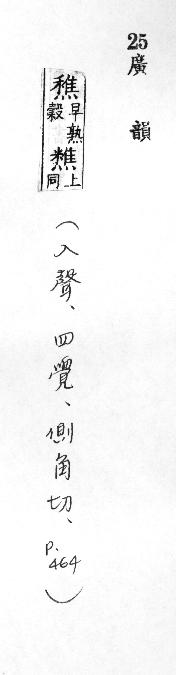 25 廣韻
穛早熟穀𥼚上同
（入聲、四覺、側角切、p.464）